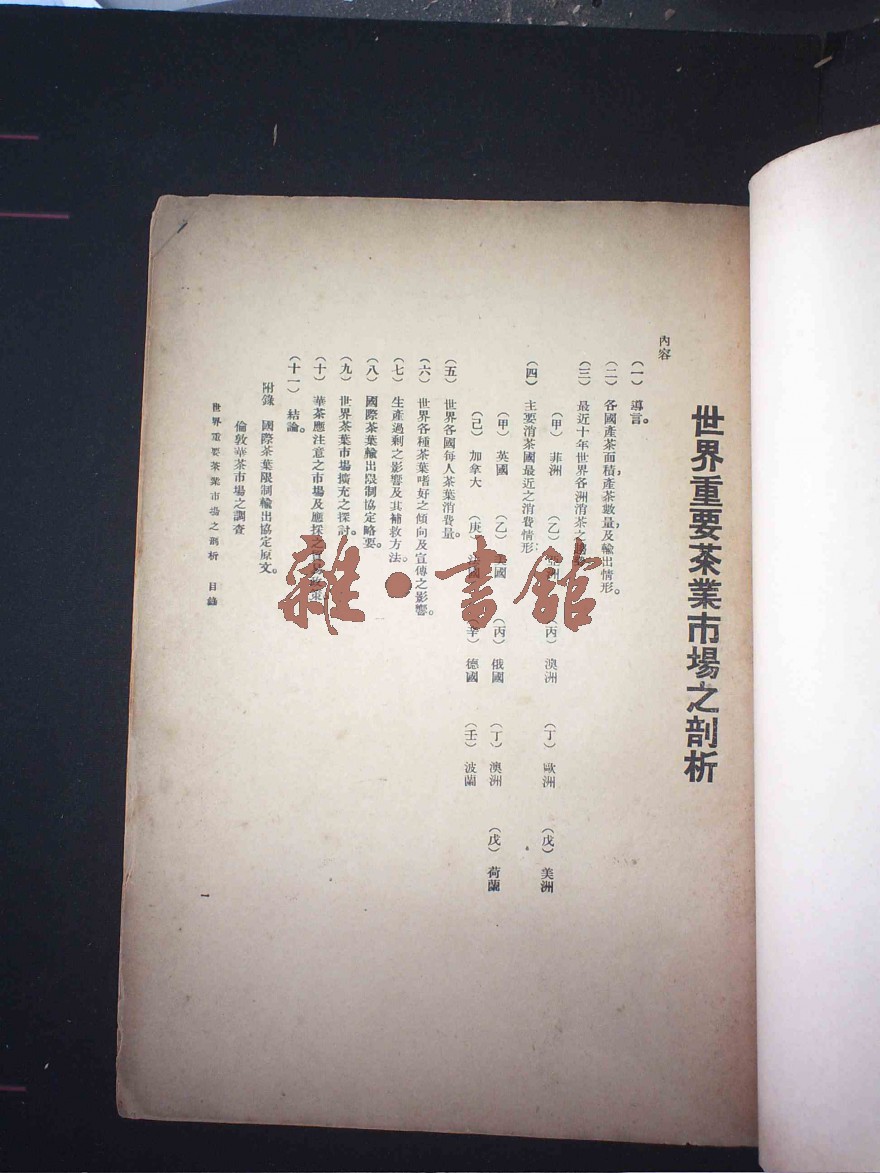 世界重要茶業市場之剖析
內容
(一) 導言。
(二) 各國產茶面積,產茶數量,及輸出情形。
(三) 最近十年世界各洲消茶之
(甲) 非洲 (乙) 洲 (丙) 澳洲 (丁) 歐洲 (戊) 美洲
(四) 主要消茶國最近之消費情形:
(甲) 英國 (乙) 美國 (丙) 俄國 (丁) 澳洲 (戊) 荷蘭
(己) 加拿大 (庚) 國 (辛) 德國 (壬) 波蘭
(五) 世界各國每人茶葉消費量。
(六) 世界各種茶葉嗜好之傾向及宣傳之影響。
(七) 生產過剩之影響及其補救方法。
(八) 國際茶葉輸出限制協定略要。
(九) 世界茶葉市場擴充之探討。
(十) 華茶應注意之市場及應採之
(十一) 結論。
附錄 國際茶葉限制輸出協定原文。
倫敦華茶市場之調查
世界重要茶業市場之剖析 目錄
一
雜·書館